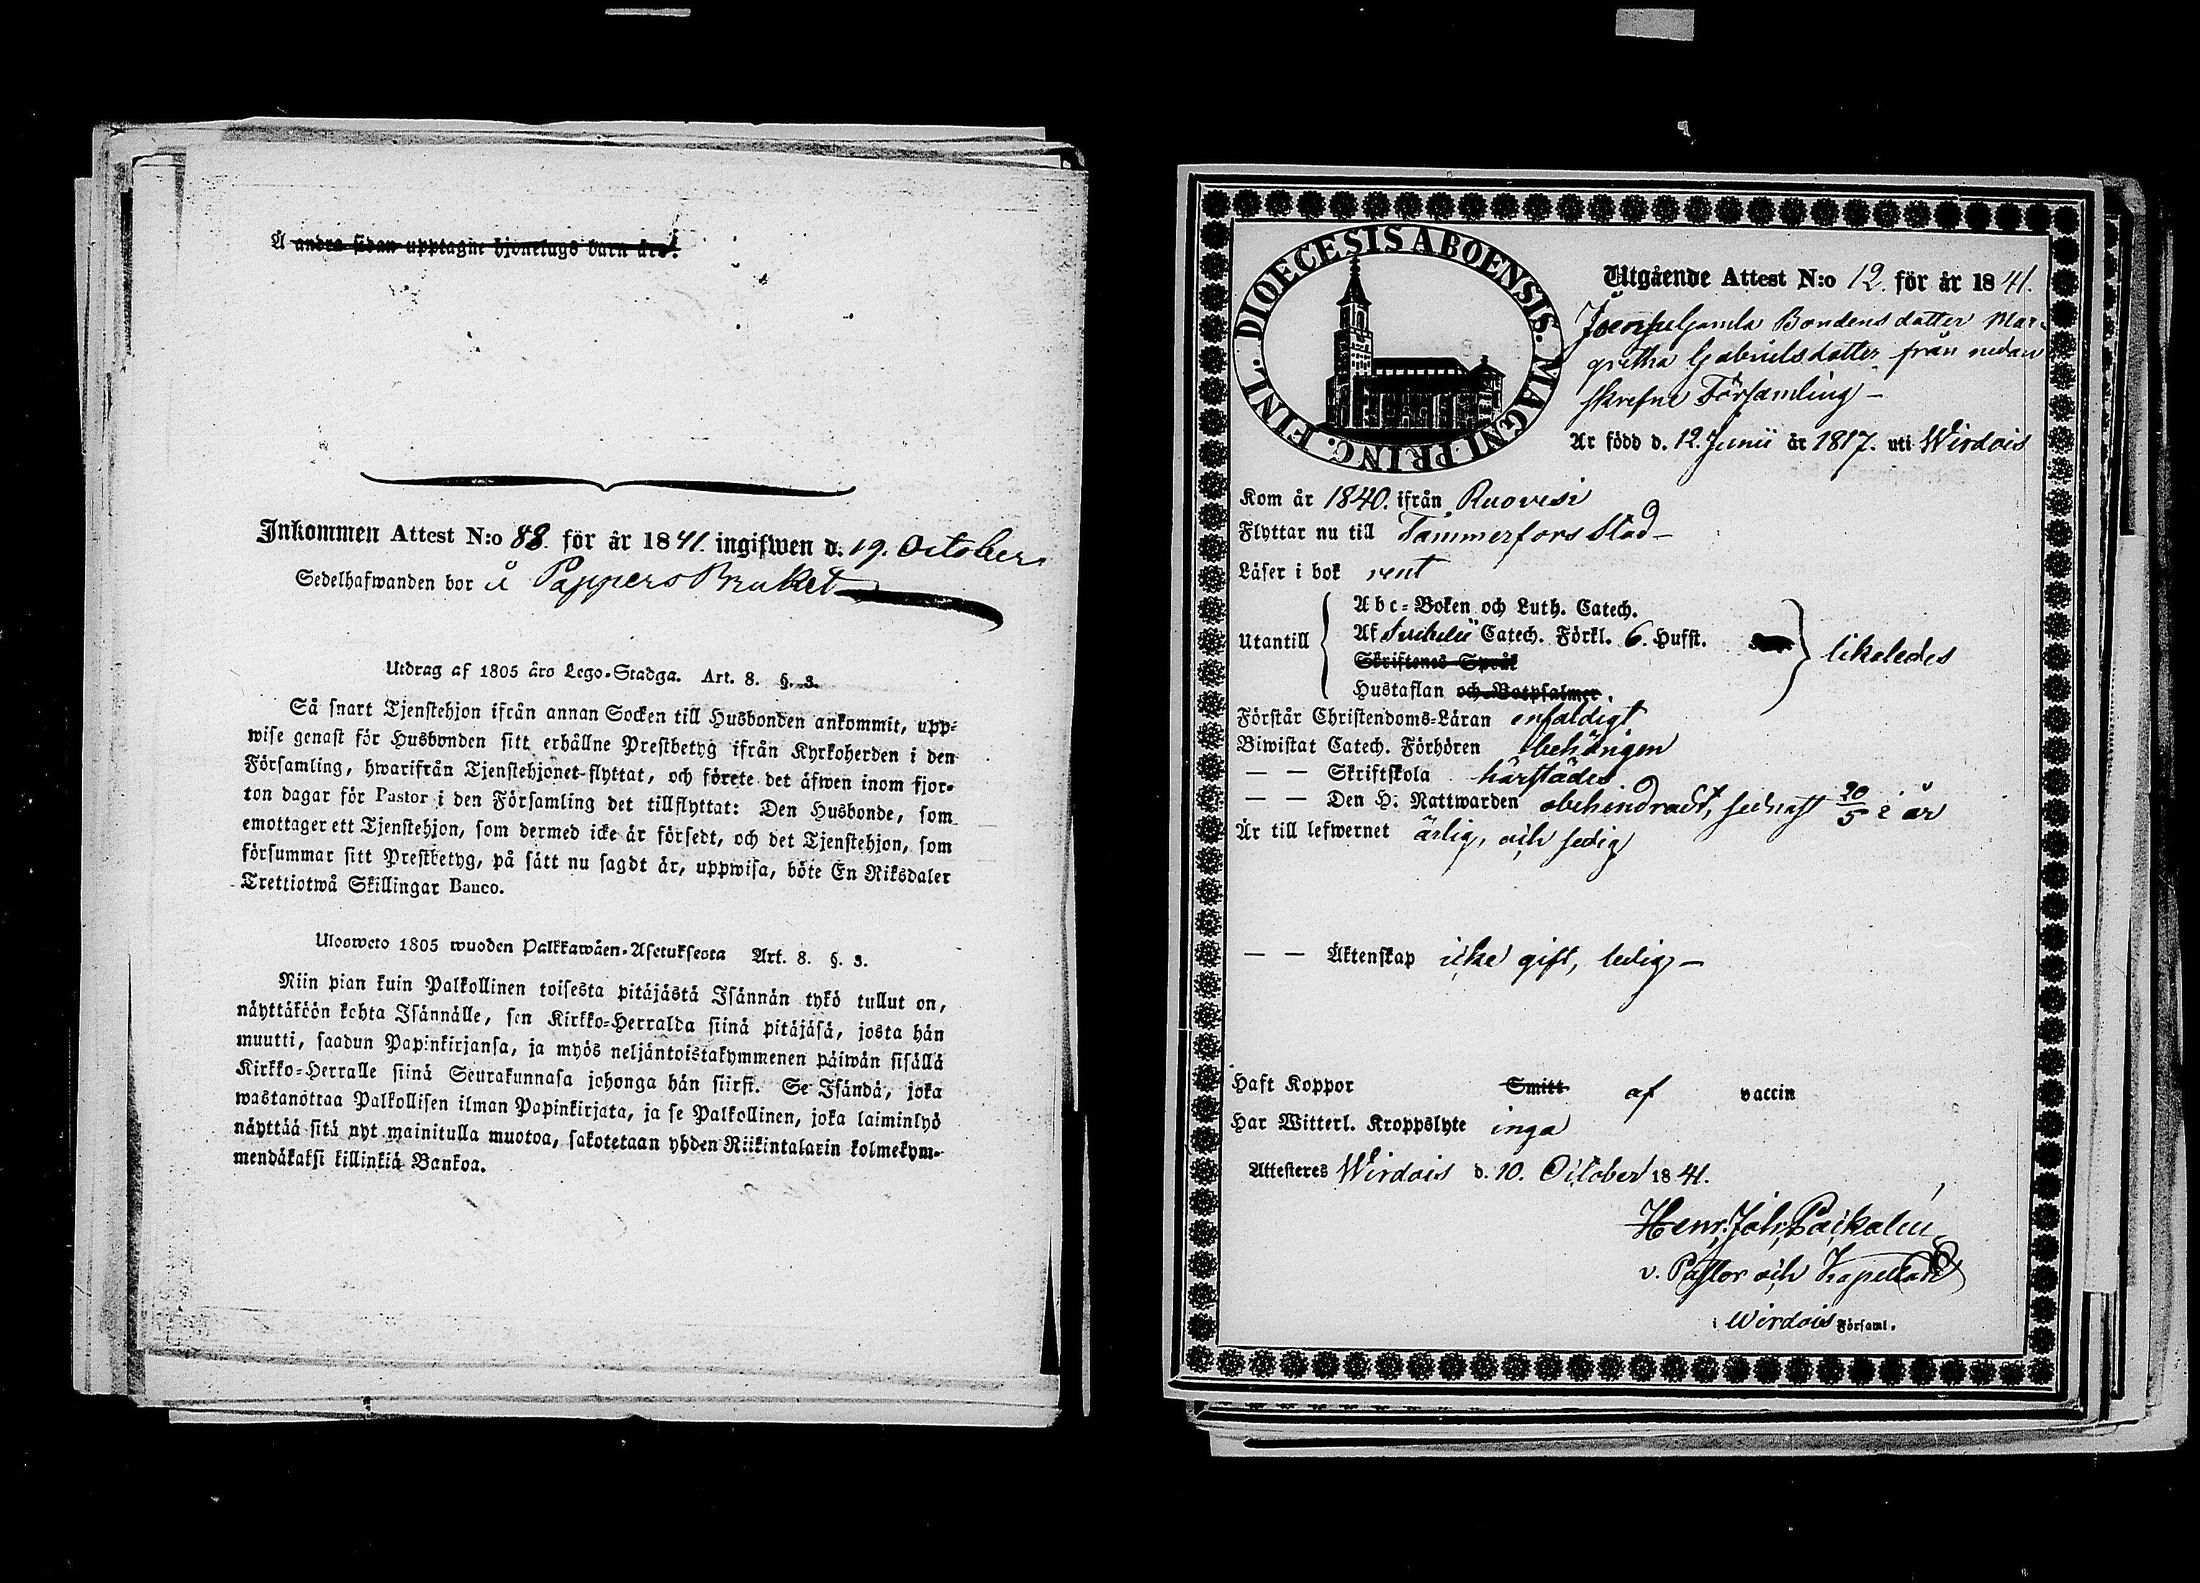 Å andra sidan upptagne hjonelags barn äro:
Inkommen Attest N:o 88. för år 1841. ingifwen d. 19. October
Sedelhafwanden bor å Pappers Bruket
Utdrag af 1805 års Lego-Stadga. Art. 8. §. 3.
Så snart Tjenstehjon ifrån annan Socken till Husbonden ankommit, upp-
wise genast för Husbonden sitt erhållne Prestbetyg ifrån Kyrkoherden i den
Församling, hwarifrån Tjenstehjonet flyttat, och förete det äfwen inom fjor-
ton dagar för Pastor i den Församling det tillflyttat: Den Husbonde, som
emottager ett Tjenstehjon, som dermed icke är försedt, och det Tjenstehjon, som
försummar sitt Prestbetyg, på sätt nu sagdt är, uppwisa, böte En Riksdaler
Trettiotwå Skillingar Banco.
Ulosweto 1805 wuoden Palkkawäen-Asetuksesta Art. 8. §. 3.
Niin pian kuin Palkollinen toisesta pitäjästä Isännän tykö tullut on,
näyttäköön kohta Isännälle, sen Kirkko-Herralda siinä pitäjäsä, josta hän
muutti, saadun Papinkirjansa, ja myös neljäntoistakymmenen päiwän sisällä
Kirkko-Herralle siinä Seurakunnasa johonga hän siirsi. Se Isändä, joka
wastanottaa Palkollisen ilman Papinkirjata, ja se Palkollinen, joka laiminlyö
näyttää sitä nyt mainitulla muotoa, sakotetaan yhden Riikintalarin kolmekym-
mendäkaksi killinkiä Bankoa.
DIOECESIS ABOENSIS. MAGNI. PRINC. FINL.
Utgående Attest N:o 12. för år 1841.
Bondens dotter Mar-
gretha Gabrielsdotter från nedan
skrefne Församling –
Är född d. 12. Junii år 1817. uti Wirdois
Kom år 1840. ifrån Ruovesi
Flyttar nu till Tammerfors Stad –
Läser i bok rent
Utantill
Abc-Boken och Luth. Catech.
Af Svebelii Catech. Förkl. 6. Hufst.
Skriftenes Språk
Hustaflan och Botpsalmer.
likaledes
Förstår Christendoms-Läran enfaldigt
Biwistat Catech. Förhören behörigen
— — Skriftskola härstädes
— — Den H. Nattwarden obehindradt, sednast 20/5 i år
Är till lefwernet ärlig, och sedig
— — Äktenskap icke gift, ledig –
Haft Koppor Smitt af vaccin
Har Witterl. Kroppslyte inga
Attesteres Wirdois d. 10. October 1841.
Henr. Joh. Packalén
v. Pastor och Kapellan
i Wirdois Församl.